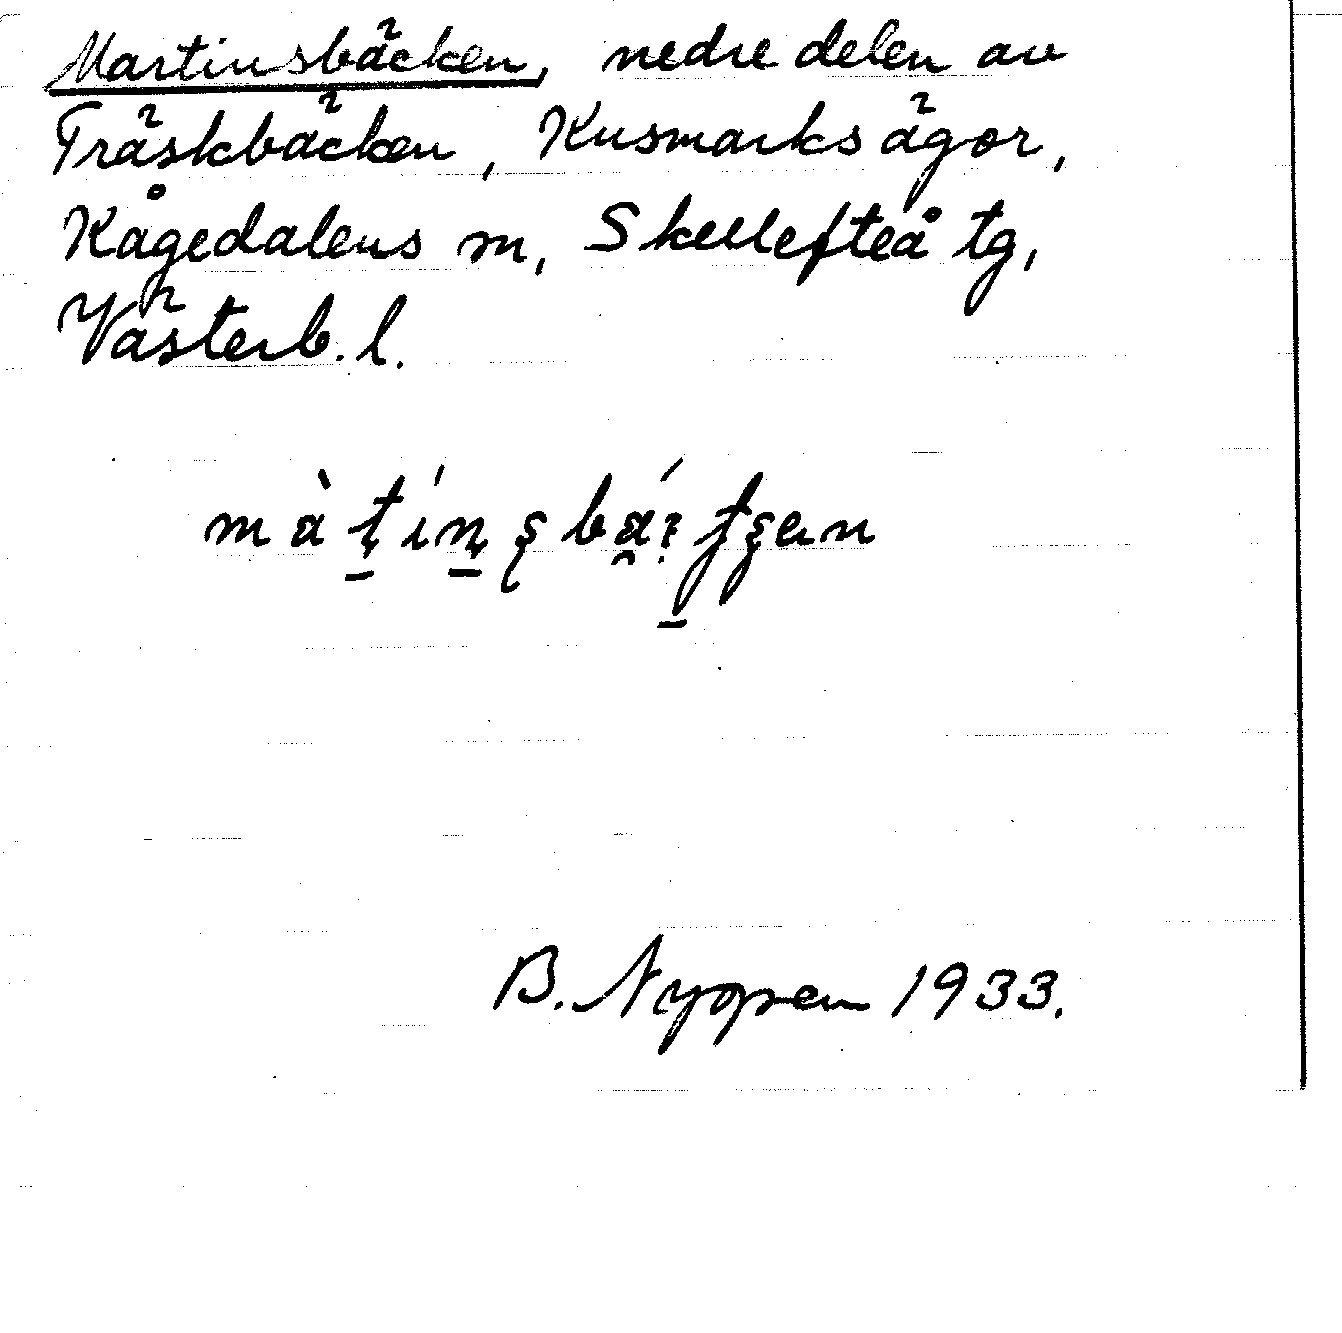 Martinsbäcken, nedre delen av
Träskbäcken, Kusmarks ägor,
Kågedalens m, Skellefteå tg,
Västerb. l.
B. Nyopen 1933.